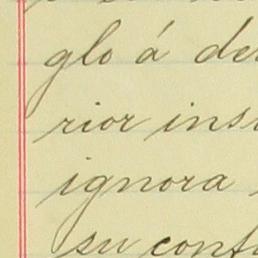 glo á de
rior ins
ignora
su conf